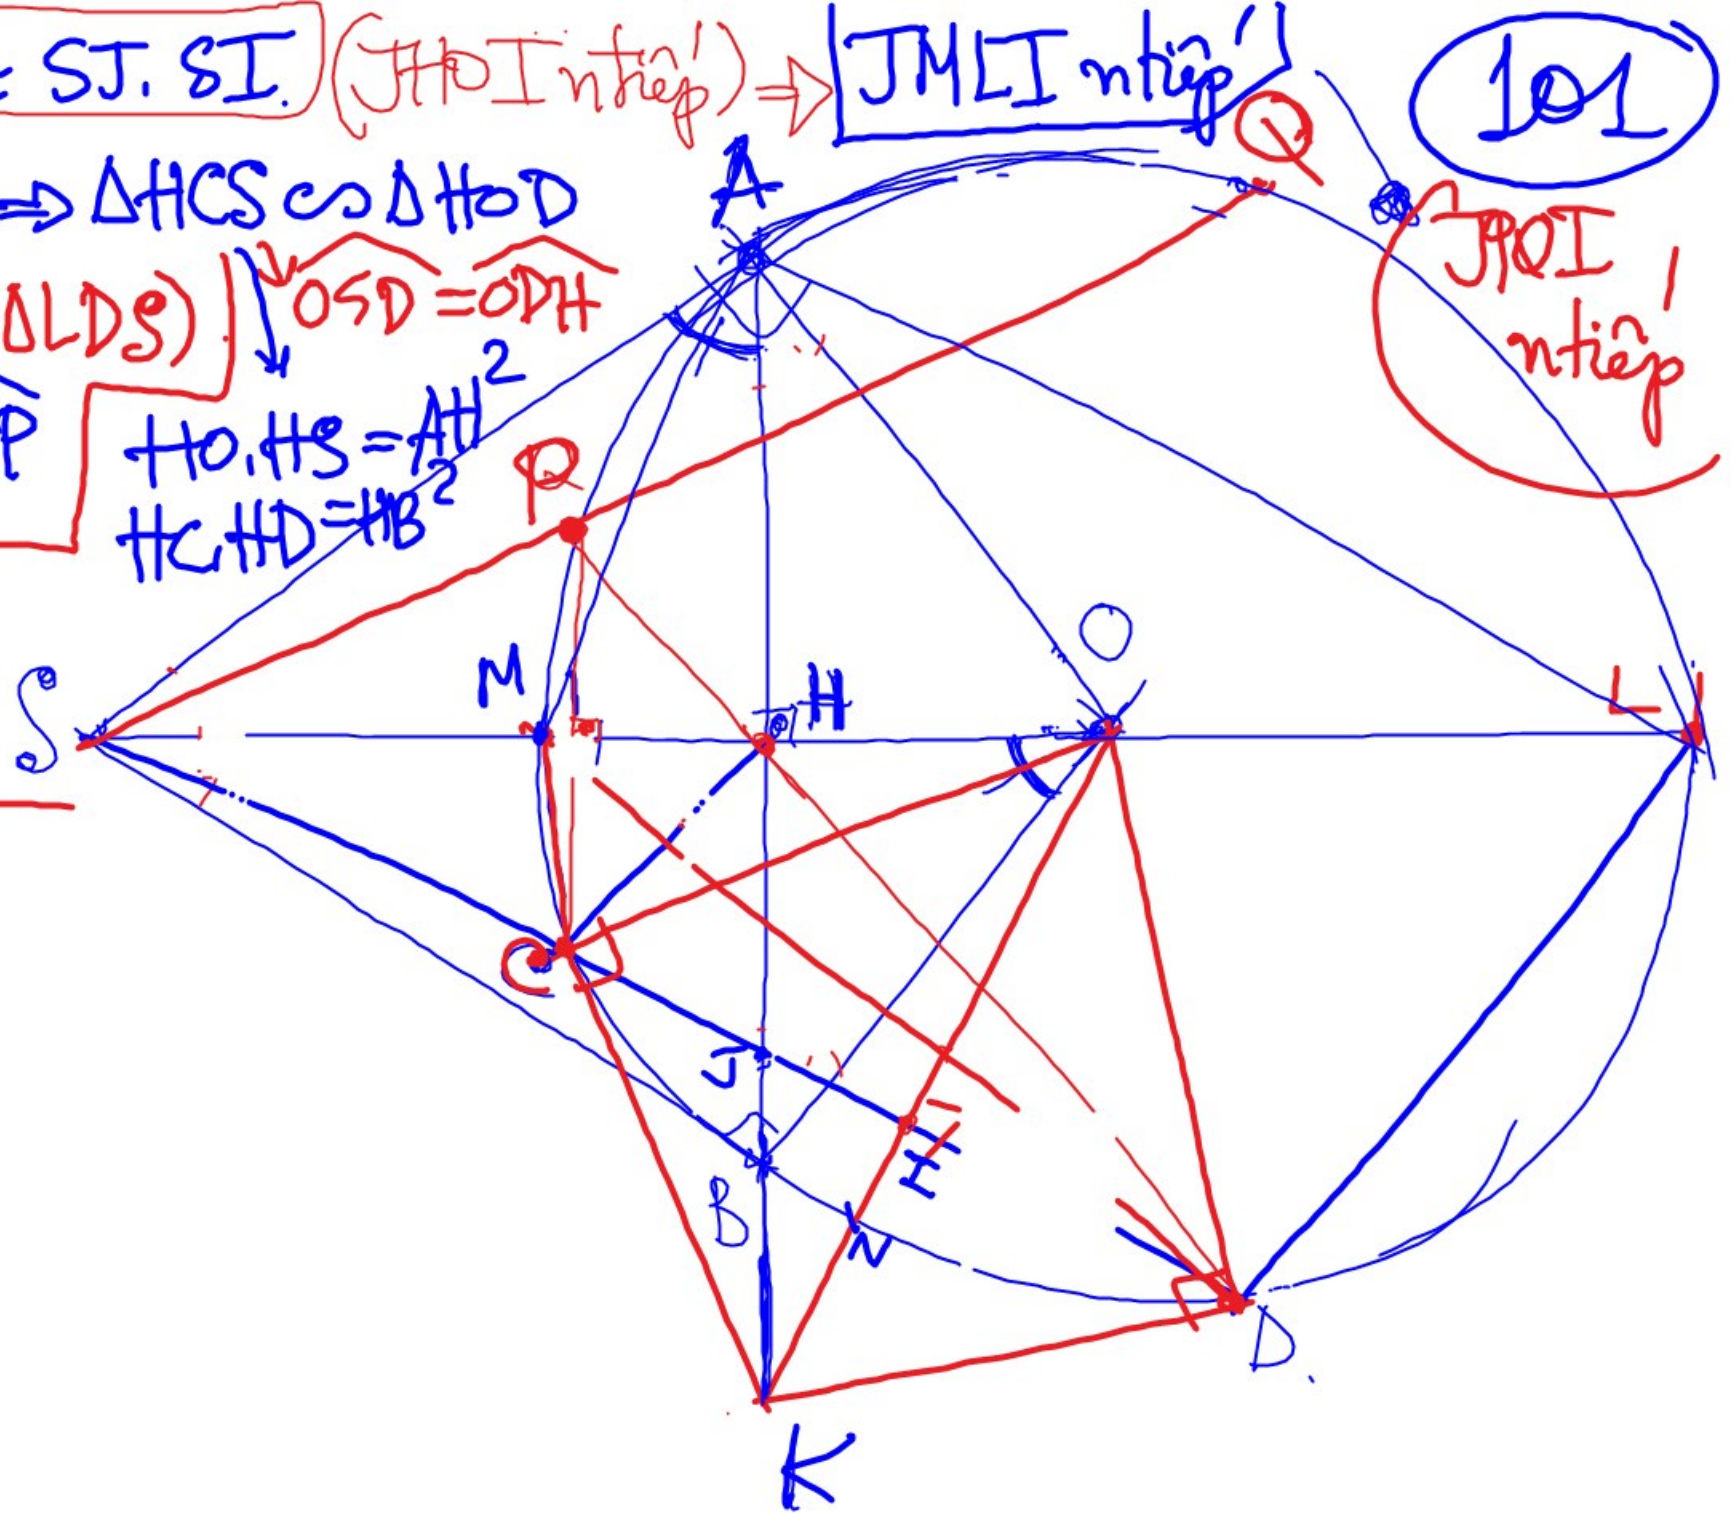 = SJ. SI. (JHOI ntiếp) ⇒ JMLI ntiếp
101
⇒ ΔHCS ∽ ΔHOD
ΔLDS)
OSD = ODH
P
HO.HS = AH²
HC.HD = HB²
JPQI
ntiếp
A
Q
P
O
S
M
H
L
C
J
I
B
N
D
K